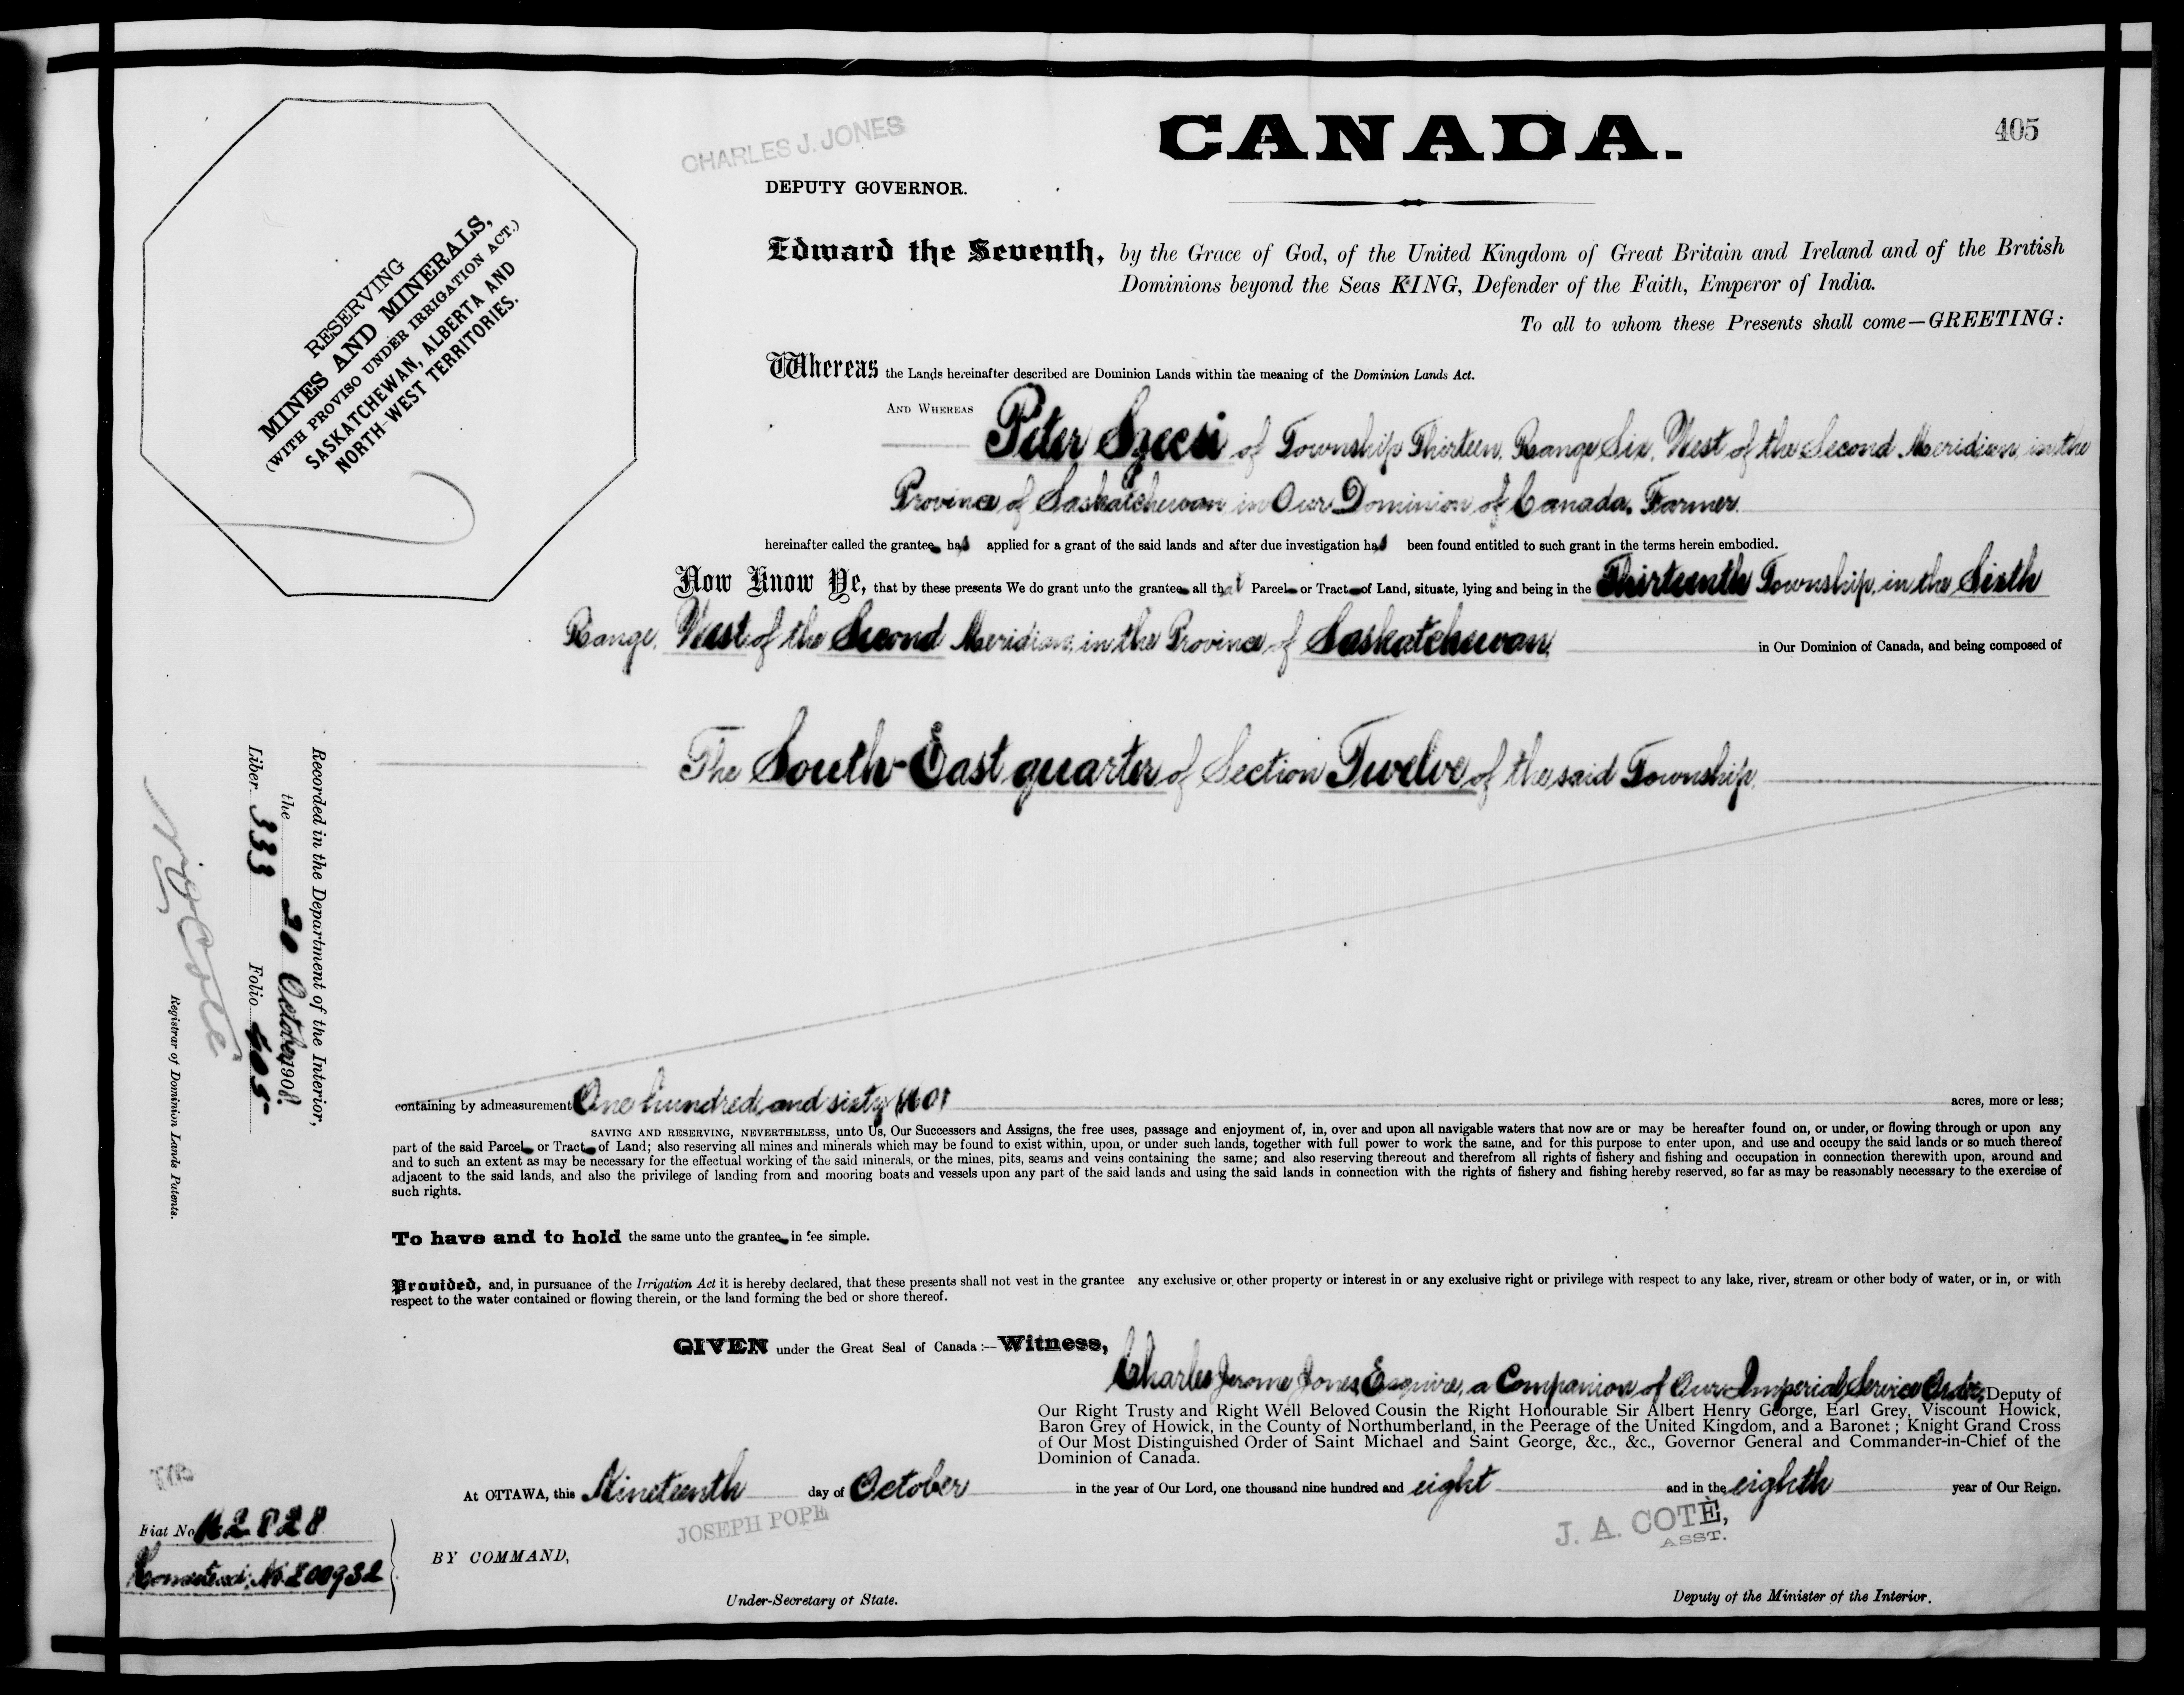 CANADA.
405
CHARLES J. JONES
DEPUTY GOVERNOR.
RESERVING
MINES AND MINERALS,
(WITH PROVISO UNDER IRRIGATION ACT.)
SASKATCHEWAN, ALBERTA AND
NORTH-WEST TERRITORIES.
Edward the Seventh, by the Grace of God, of the United Kingdom of Great Britain and Ireland and of the British
Dominions beyond the Seas KING, Defender of the Faith, Emperor of India.
To all to whom these Presents shall come—GREETING:
Whereas the Lands hereinafter described are Dominion Lands within the meaning of the Dominion Lands Act.
AND WHEREAS Peter Szecsi of Township Thirteen, Range Six, West of the Second Meridian, in the
Province of Saskatchewan, in Our Dominion of Canada, Farmer.
hereinafter called the grantee has applied for a grant of the said lands and after due investigation has been found entitled to such grant in the terms herein embodied.
Now Know Ye, that by these presents We do grant unto the grantee all that Parcel or Tract of Land, situate, lying and being in the Thirteenth Township, in the Sixth
Range, West of the Second Meridian, in the Province of Saskatchewan, in Our Dominion of Canada, and being composed of
The South-East quarter of Section Twelve of the said Township,
Recorded in the Department of the Interior,
the 20 October 1908
Liber 333 Folio 405
Registrar of Dominion Lands Patents.
containing by admeasurement One hundred and sixty (160) acres, more or less;
SAVING AND RESERVING, NEVERTHELESS, unto Us, Our Successors and Assigns, the free uses, passage and enjoyment of, in, over and upon all navigable waters that now are or may be hereafter found on, or under, or flowing through or upon any
part of the said Parcel or Tract of Land; also reserving all mines and minerals which may be found to exist within, upon, or under such lands, together with full power to work the same, and for this purpose to enter upon, and use and occupy the said lands or so much thereof
and to such an extent as may be necessary for the effectual working of the said minerals, or the mines, pits, seams and veins containing the same; and also reserving thereout and therefrom all rights of fishery and fishing and occupation in connection therewith upon, around and
adjacent to the said lands, and also the privilege of landing from and mooring boats and vessels upon any part of the said lands and using the said lands in connection with the rights of fishery and fishing hereby reserved, so far as may be reasonably necessary to the exercise of
such rights.
To have and to hold the same unto the grantee in fee simple.
Provided, and, in pursuance of the Irrigation Act it is hereby declared, that these presents shall not vest in the grantee any exclusive or other property or interest in or any exclusive right or privilege with respect to any lake, river, stream or other body of water, or in, or with
respect to the water contained or flowing therein, or the land forming the bed or shore thereof.
GIVEN under the Great Seal of Canada:—Witness,
Charles Jerome Jones, Esquire, a Companion of Our Imperial Service Order, Deputy of
Our Right Trusty and Right Well Beloved Cousin the Right Honourable Sir Albert Henry George, Earl Grey, Viscount Howick,
Baron Grey of Howick, in the County of Northumberland, in the Peerage of the United Kingdom, and a Baronet; Knight Grand Cross
of Our Most Distinguished Order of Saint Michael and Saint George, &c., &c., Governor General and Commander-in-Chief of the
Dominion of Canada.
At OTTAWA, this Nineteenth day of October in the year of Our Lord, one thousand nine hundred and eight and in the eighth year of Our Reign.
JOSEPH POPE
J. A. COTÈ,
ASST.
Fiat No
Homestead, No
BY COMMAND,
Under-Secretary of State.
Deputy of the Minister of the Interior.